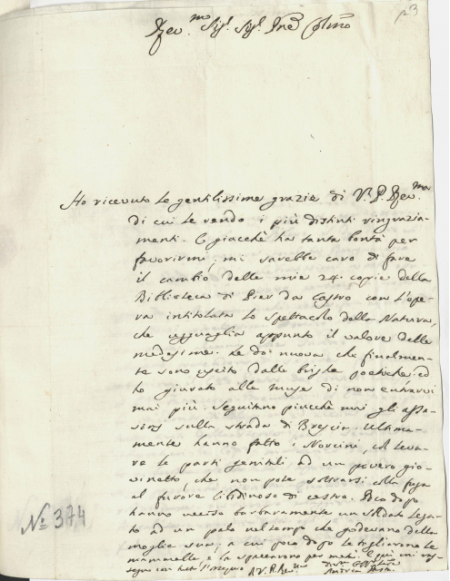 Rev.mo Sig.r Sig.r Pne Colmo
Ho ricevuto le gentilissime grazie di V. P. Rev.ma
di cui le rendo i più distinti ringrazia-
menti. E giacchè ha tanta bontà per
favorirmi, mi sarebbe caro di fare
il cambio delle mie 24. copie della
Biblioteca di Pier da Castro con l'ope-
ra intitolata lo Spettacolo della Natura,
che agguaglia appunto il valore delle
medesime. Le do nuova che finalmen-
te sono uscito dalle brighe poetiche ed
ho giurato alle muse di non entrarvi
mai più. Seguitano piucchè mai gli assas-
sinj sulla strada di Brescia. Ultima-
mente hanno fatto i Norcini, col leva-
re le parti genitali ad un povero gio-
vinetto, che non potè sottrarsi alla fuga
al furore libidinoso di costoro. Poco dopo
hanno ucciso barbaramente un soldato lega-
to ad un palo nel tempo che godevano della
moglie sua, a cui poco dopo le tagliarono le
mammelle e la spaccarono per metà. E qui mi ras-
segno con tutto l'ossequio
D. V. P. Rev.ma
N.° 374